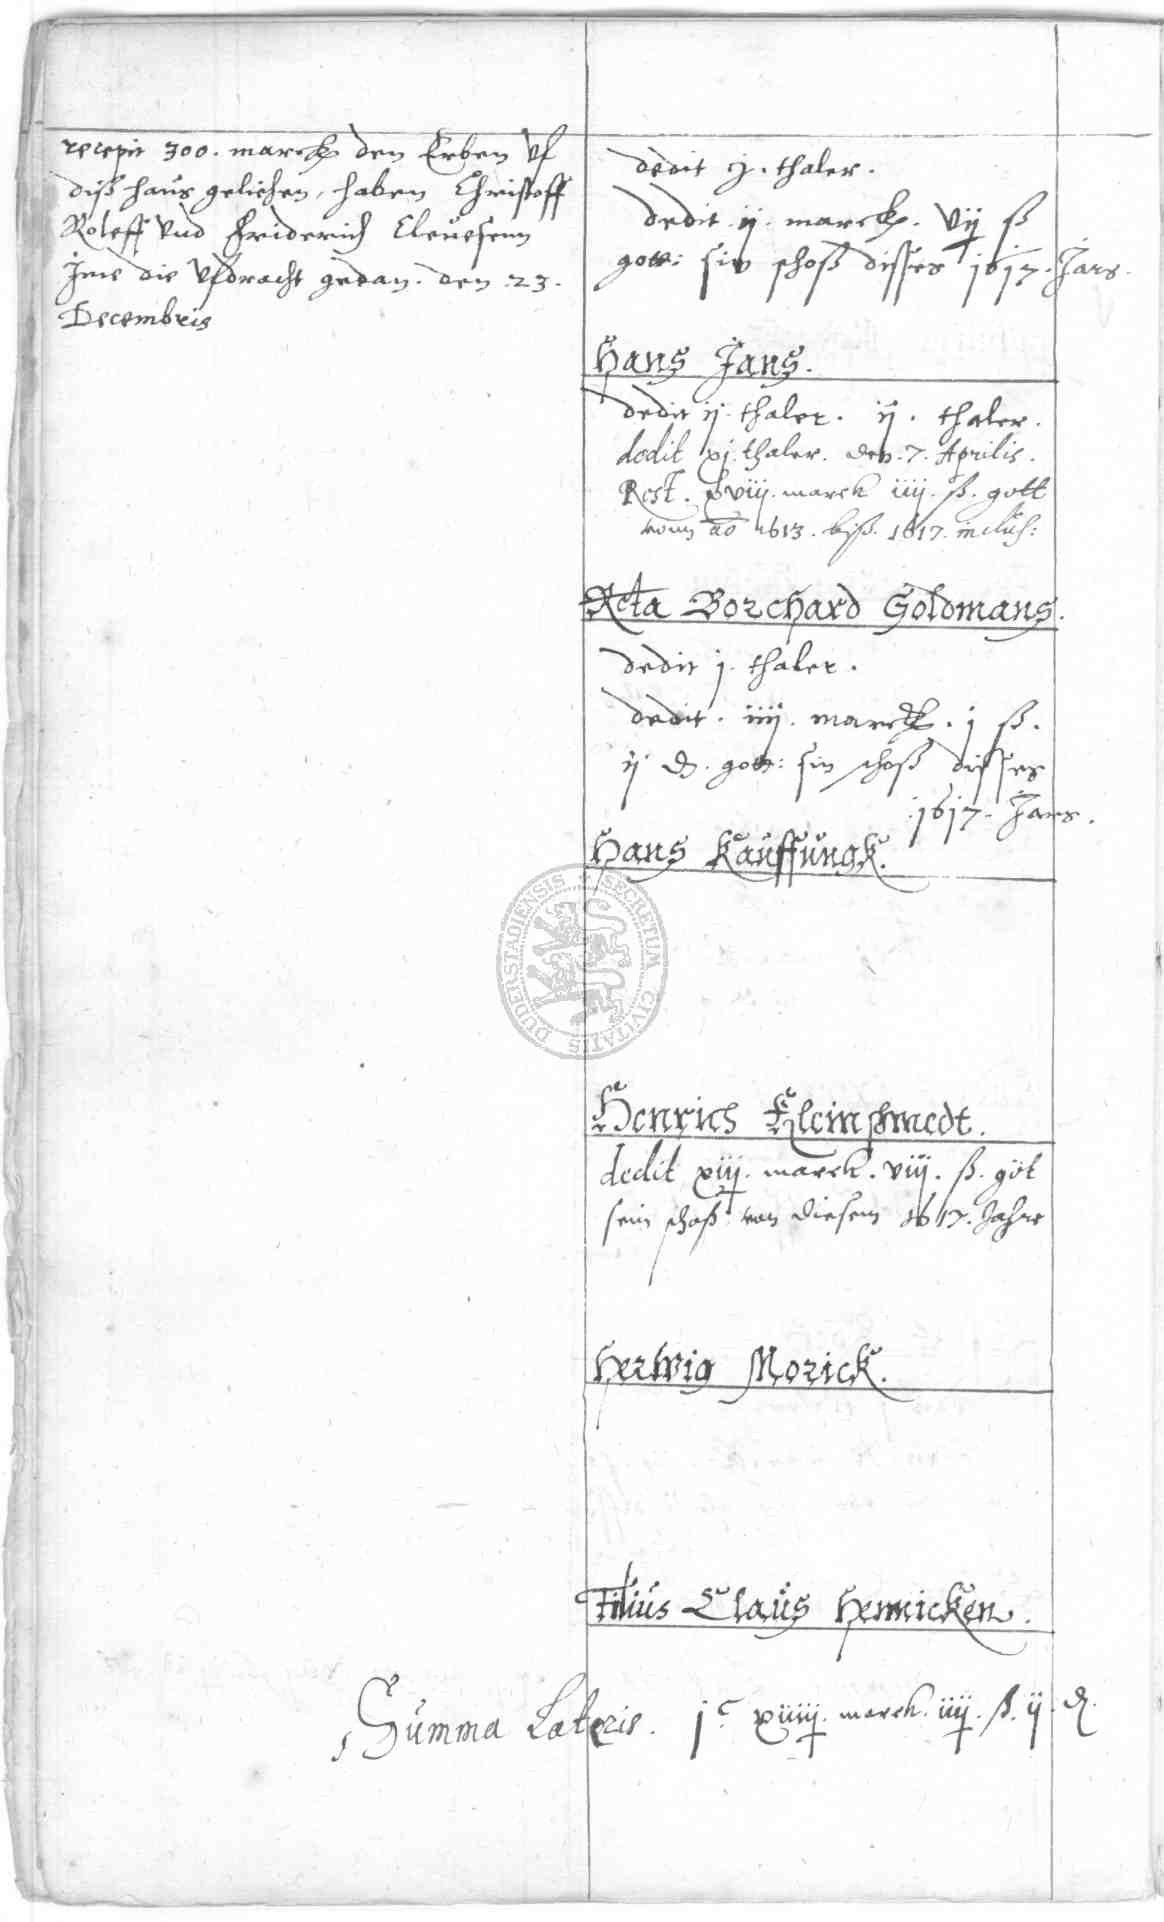 recepit 300. marck den Erben vf
diß haus geliehen, haben Christoff
Roleff vnd Friderich Cleuesenn
Jme die vfdracht gedan. den .23.
Decembris
dedit ij. thaler.
dedit. ij. marck. vij ß
gott: sin schoß disses 1617. Jars.
Hans Jans.
dedit ij. thaler. ij. thaler.
dedit xj. thaler. den. 7. Aprilis.
Rest. xviij. marck iiij. ß. gott
vonn ao 1613. biß. 1617. inclus:
Relicta Borchard Goldmans.
dedit j. thaler.
dedit. iiij. marck. j ß.
ij d. gott: sin schoß disses
1617. Jars.
Hans Kauffungk.
DUDERSTADIENSIS SECRETUM CIVITATIS
Henrich Kleinschmedt.
dedit xiij. marck. viij. ß. göt
sein schoß von diesem 1617. Jahre
Herwig Morick.
Filius Claus Hennicken.
Summa Lateris. jc xiiij. marck. iiij. ß. ij. d.